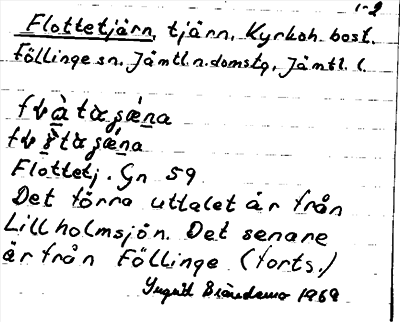 1-2
Flottetjärn, tjärn, Kyrkoh. bost.
Föllinge sn. Jämtl. n. domsg, Jämtl. l.
Flottetj. Gn 59
Det förra uttalet är från
Lillholmsjön. Det senare
är från Föllinge (forts.)
Ingrid 1969